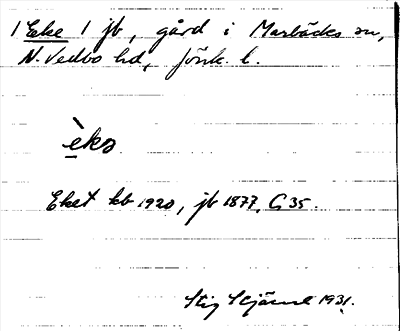 1 Eke 1 jb, gård i Marbäcks sn,
N. Vedbo hd, Jönk. l.
èkə
Eket kb 1920, jb 1877, G 35.
Stig 1931.